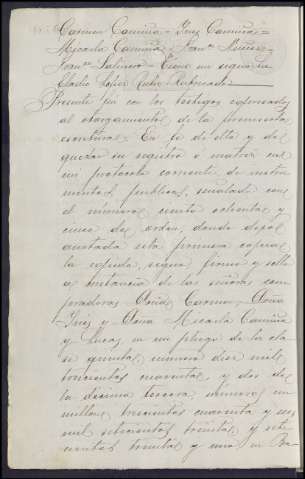 Carmen Camiña = Ynes Camiña =
Micaela Camiña = Juan
Juan Salinero = Tiene un signo =
Eladio Lopez Rubio Rubricado
Presente fui con los testigos expresados
al otorgamiento de la presente
escritura. En fe de ella y de
quedar su registro ó matriz en
mi protocolo corriente de instru
mentos publicos, señalado con
el número ciento ochenta y
cinco de orden, donde dejo
anotada esta primera copia,
la expido, signo, firmo y sello
a instancia de las señoras com
pradoras Doña Carmen, Doña
Ynes y Doña Micaela Camiña
y Lucas, en un pliego de la cla
se quinta número diez mil
trescientos cuarenta y dos de
la décima tercera número un
millon trescientos cuarenta y un
mil setecientos treinta y sete
cientos treinta y uno en